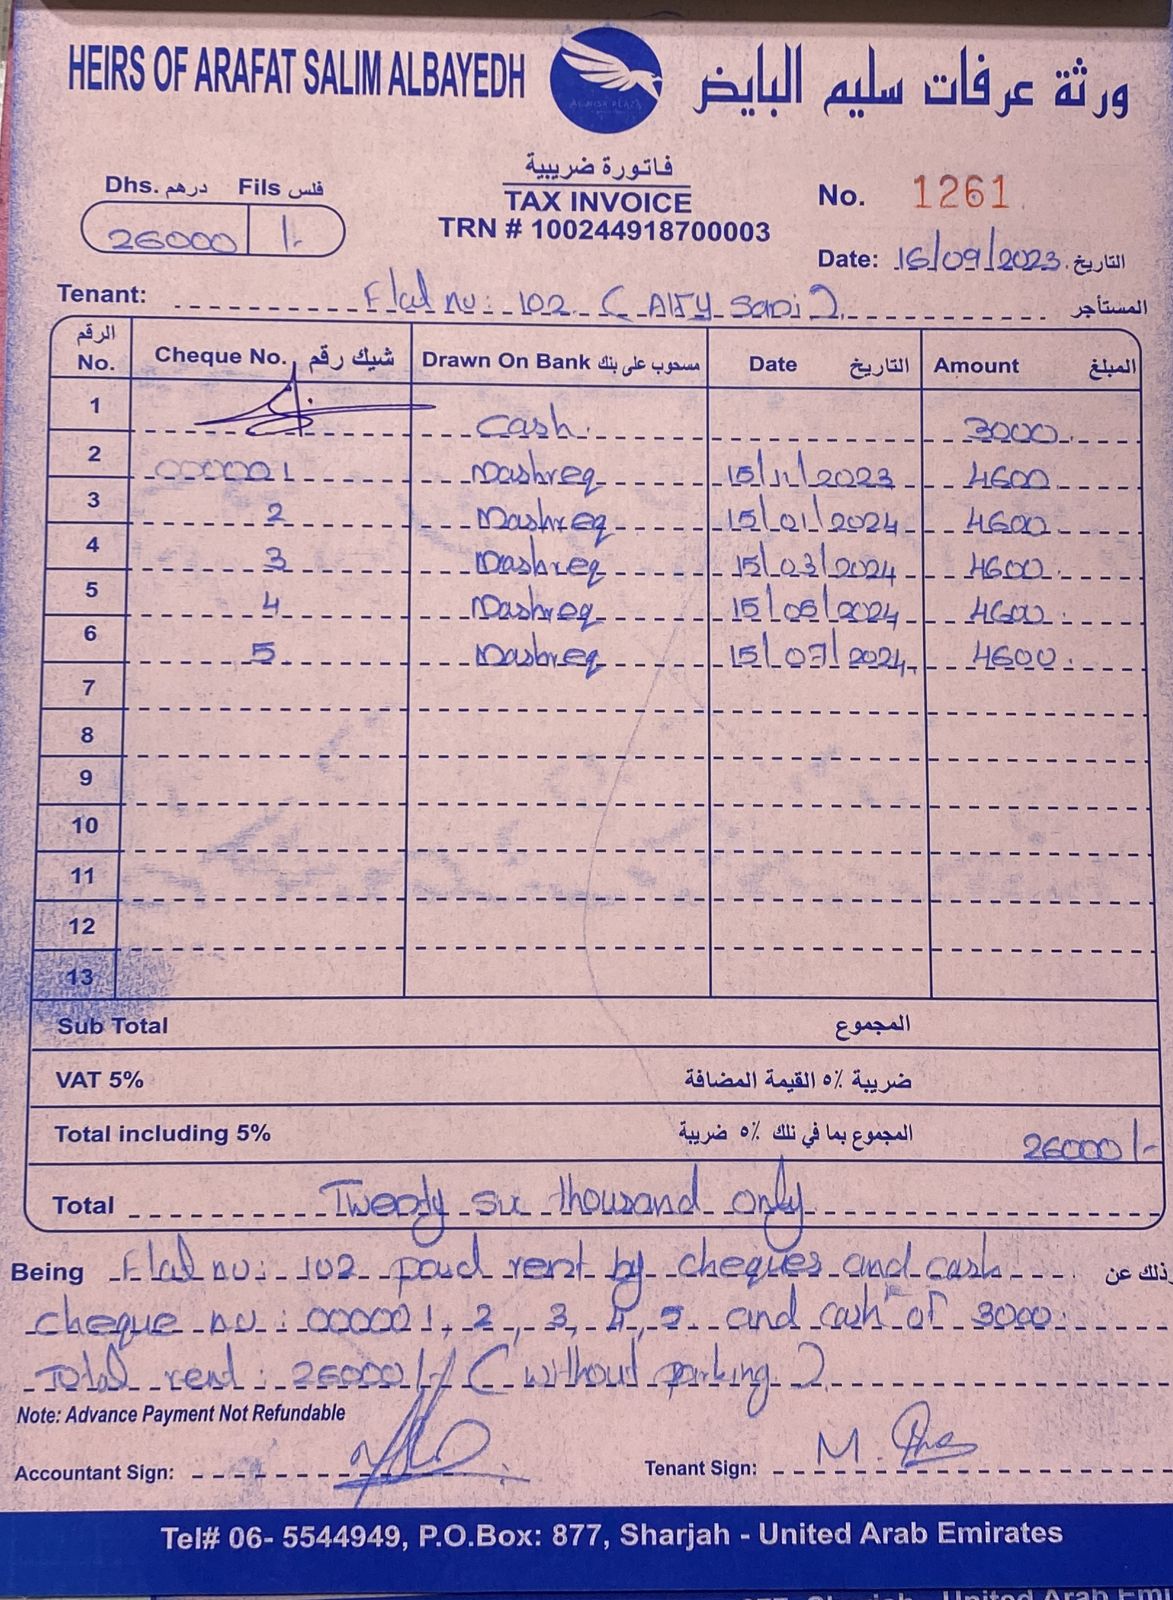 HEIRS OF ARAFAT SALIM ALBAYEDH
ورثة عرفات سليم البايض
فاتورة ضريبية
TAX INVOICE
TRN # 100244918700003
Dhs. درهم Fils فلس
26000 /-
No. 1261
Date: 16/09/2023 التاريخ
Tenant: Flat no: 102 ( المستأجر
الرقم No. Cheque No. شيك رقم Drawn On Bank مسحوب على بنك Date التاريخ Amount المبلغ
1 Cash. 3000
2 000001 Mashreq 15/11/2023 4600
3 2 Mashreq 15/01/2024 4600
4 3 Mashreq 15/03/2024 4600
5 4 Mashreq 15/05/2024 4600
6 5 Mashreq 15/07/2024 4600
7
8
9
10
11
12
13
Sub Total المجموع
VAT 5% ضريبة ٥٪ القيمة المضافة
Total including 5% المجموع بما في ذلك ٥٪ ضريبة 26000/-
Total Twenty six thousand only
Being Flat no: 102 paid rent by cheques and cash وذلك عن
cheque no: 000001, 2, 3, 4, 5 and cash of 3000.
Total rent: 26000/-/ ( without parking )
Note: Advance Payment Not Refundable
Accountant Sign:
Tenant Sign: M.
Tel# 06- 5544949, P.O.Box: 877, Sharjah - United Arab Emirates